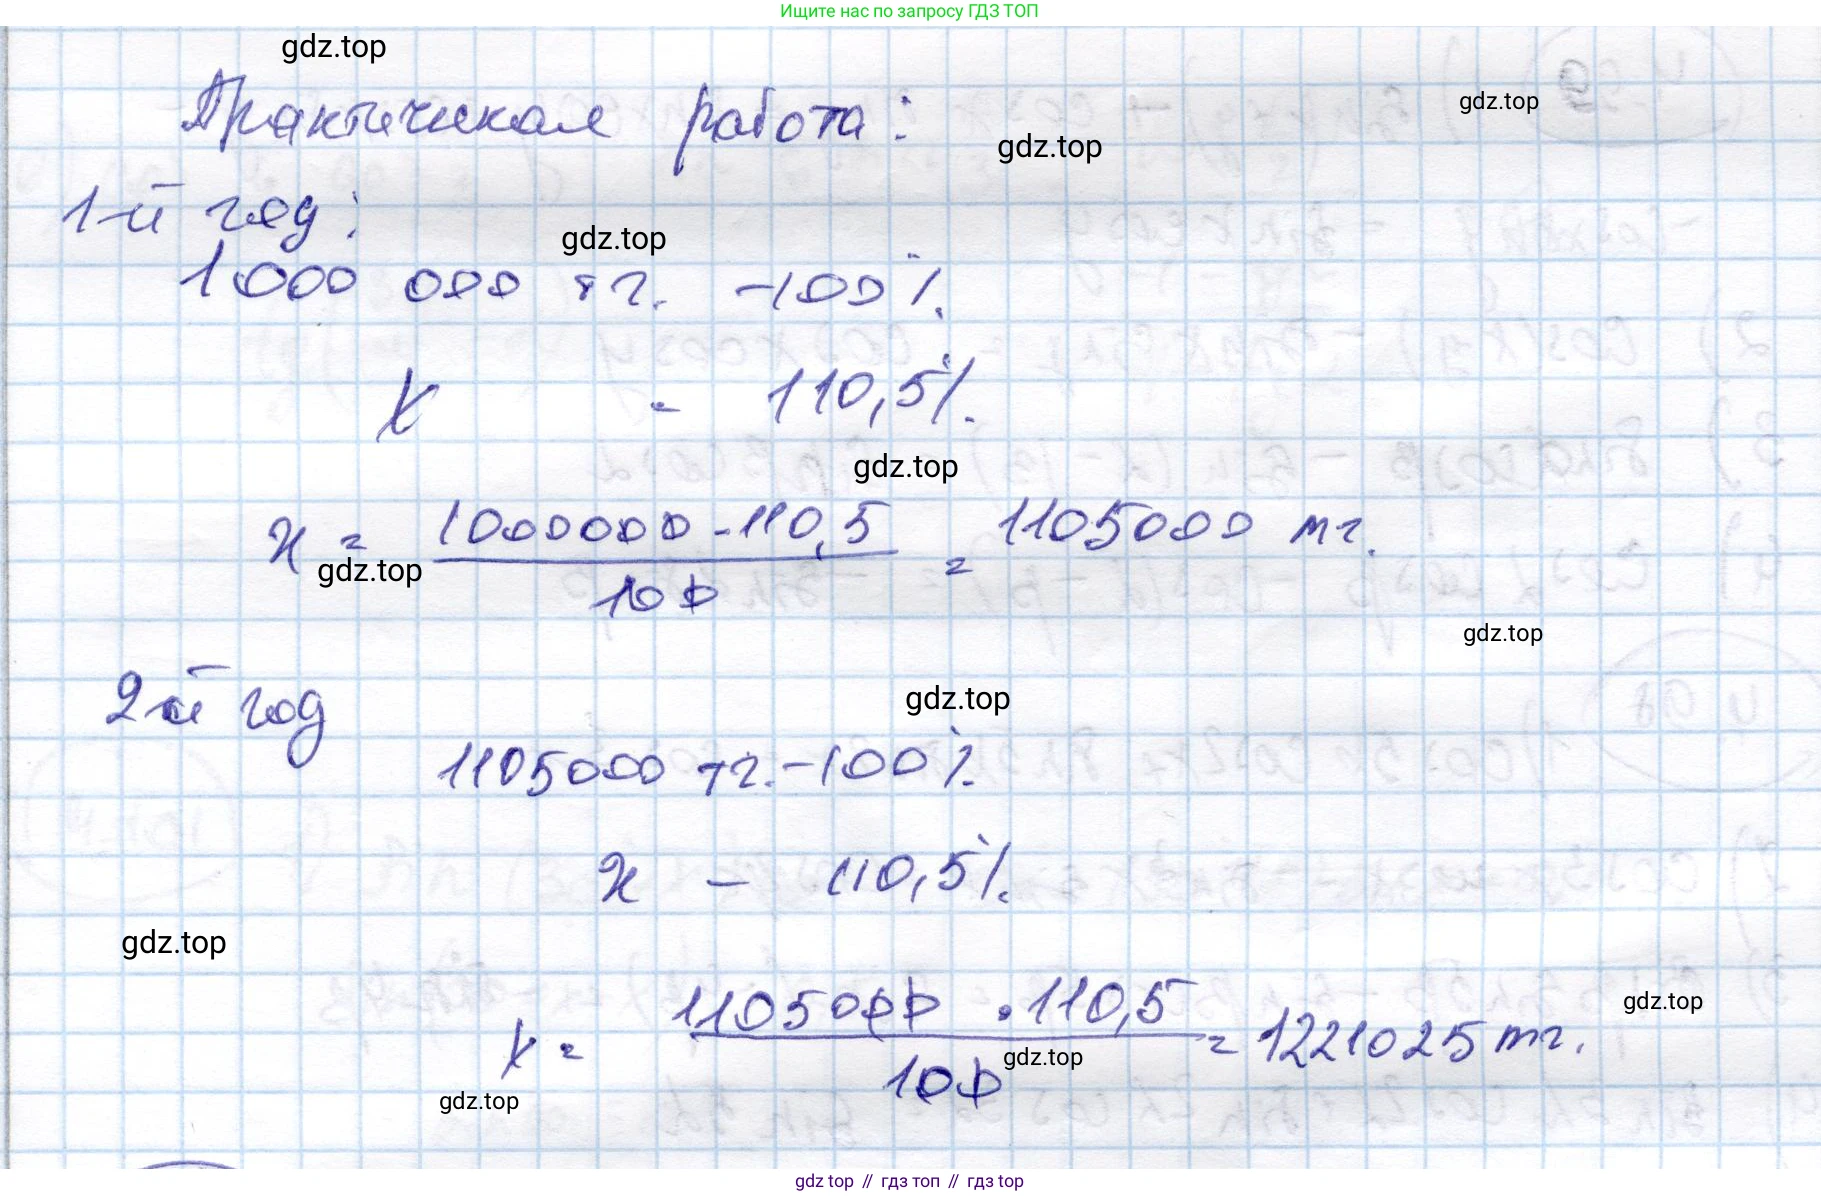 Ищите нас по запросу ГДЗ ТОП
gdz.top
Практическая работа:
gdz.top
gdz.top
1-й год:
gdz.top
1 000 000 тг. - 100%.
x - 110,5%.
gdz.top
x = 1000000 · 110,5 / 100 = 1105000 тг.
gdz.top
gdz.top
2-й год
gdz.top
1105000 тг. - 100%.
x - 110,5%.
gdz.top
x = 1105000 · 110,5 / 100 = 1221025 тг.
gdz.top
gdz.top
gdz.top
gdz top // гдз топ // gdz top